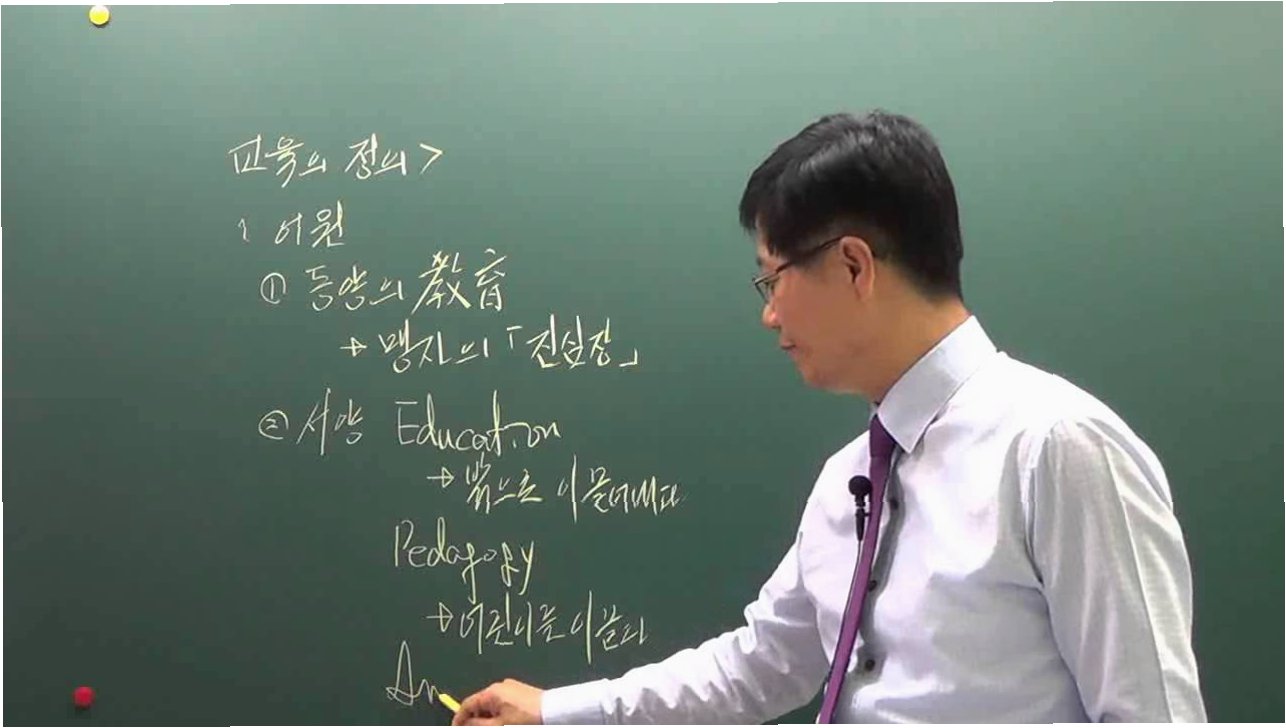 교육의 정의>
1 어원
① 동양의 教育
→ 맹자의 「진심장」
② 서양 Education
→ 밖으로 이끌어내다
Pedagogy
→ 어린이를 이끌다
An